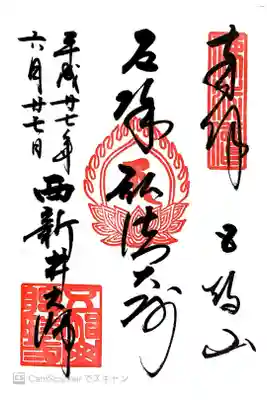 奉拝
五智山
厄除弘法大師
西新井大師
平成廿七年
六月廿七日
CS CamScanner でスキャン